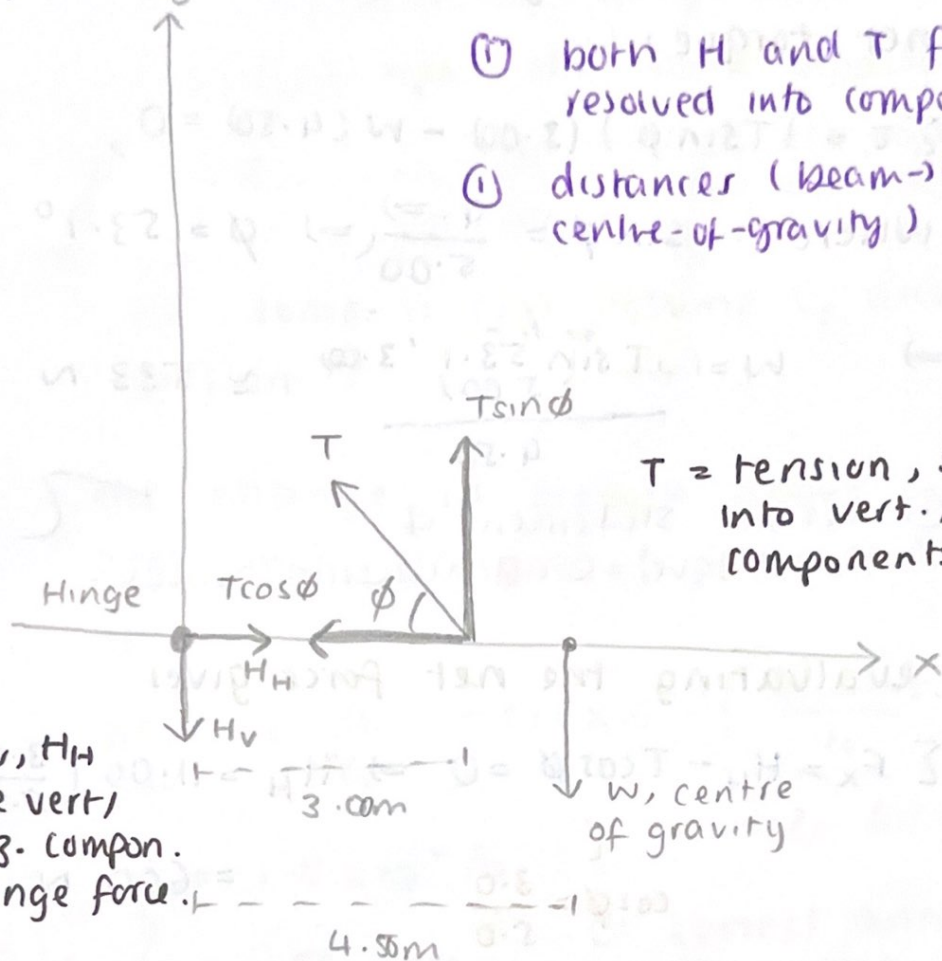 ① both H and T f
resolved into compo
① distances (beam->
centre-of-gravity)
Tsinϕ
T
T = tension,
into vert.
component
Hinge
Tcosϕ
ϕ
x
H_H
H_V
, H_H
vert/
compon.
nge force.
3.00m
W, centre
of gravity
4.50m